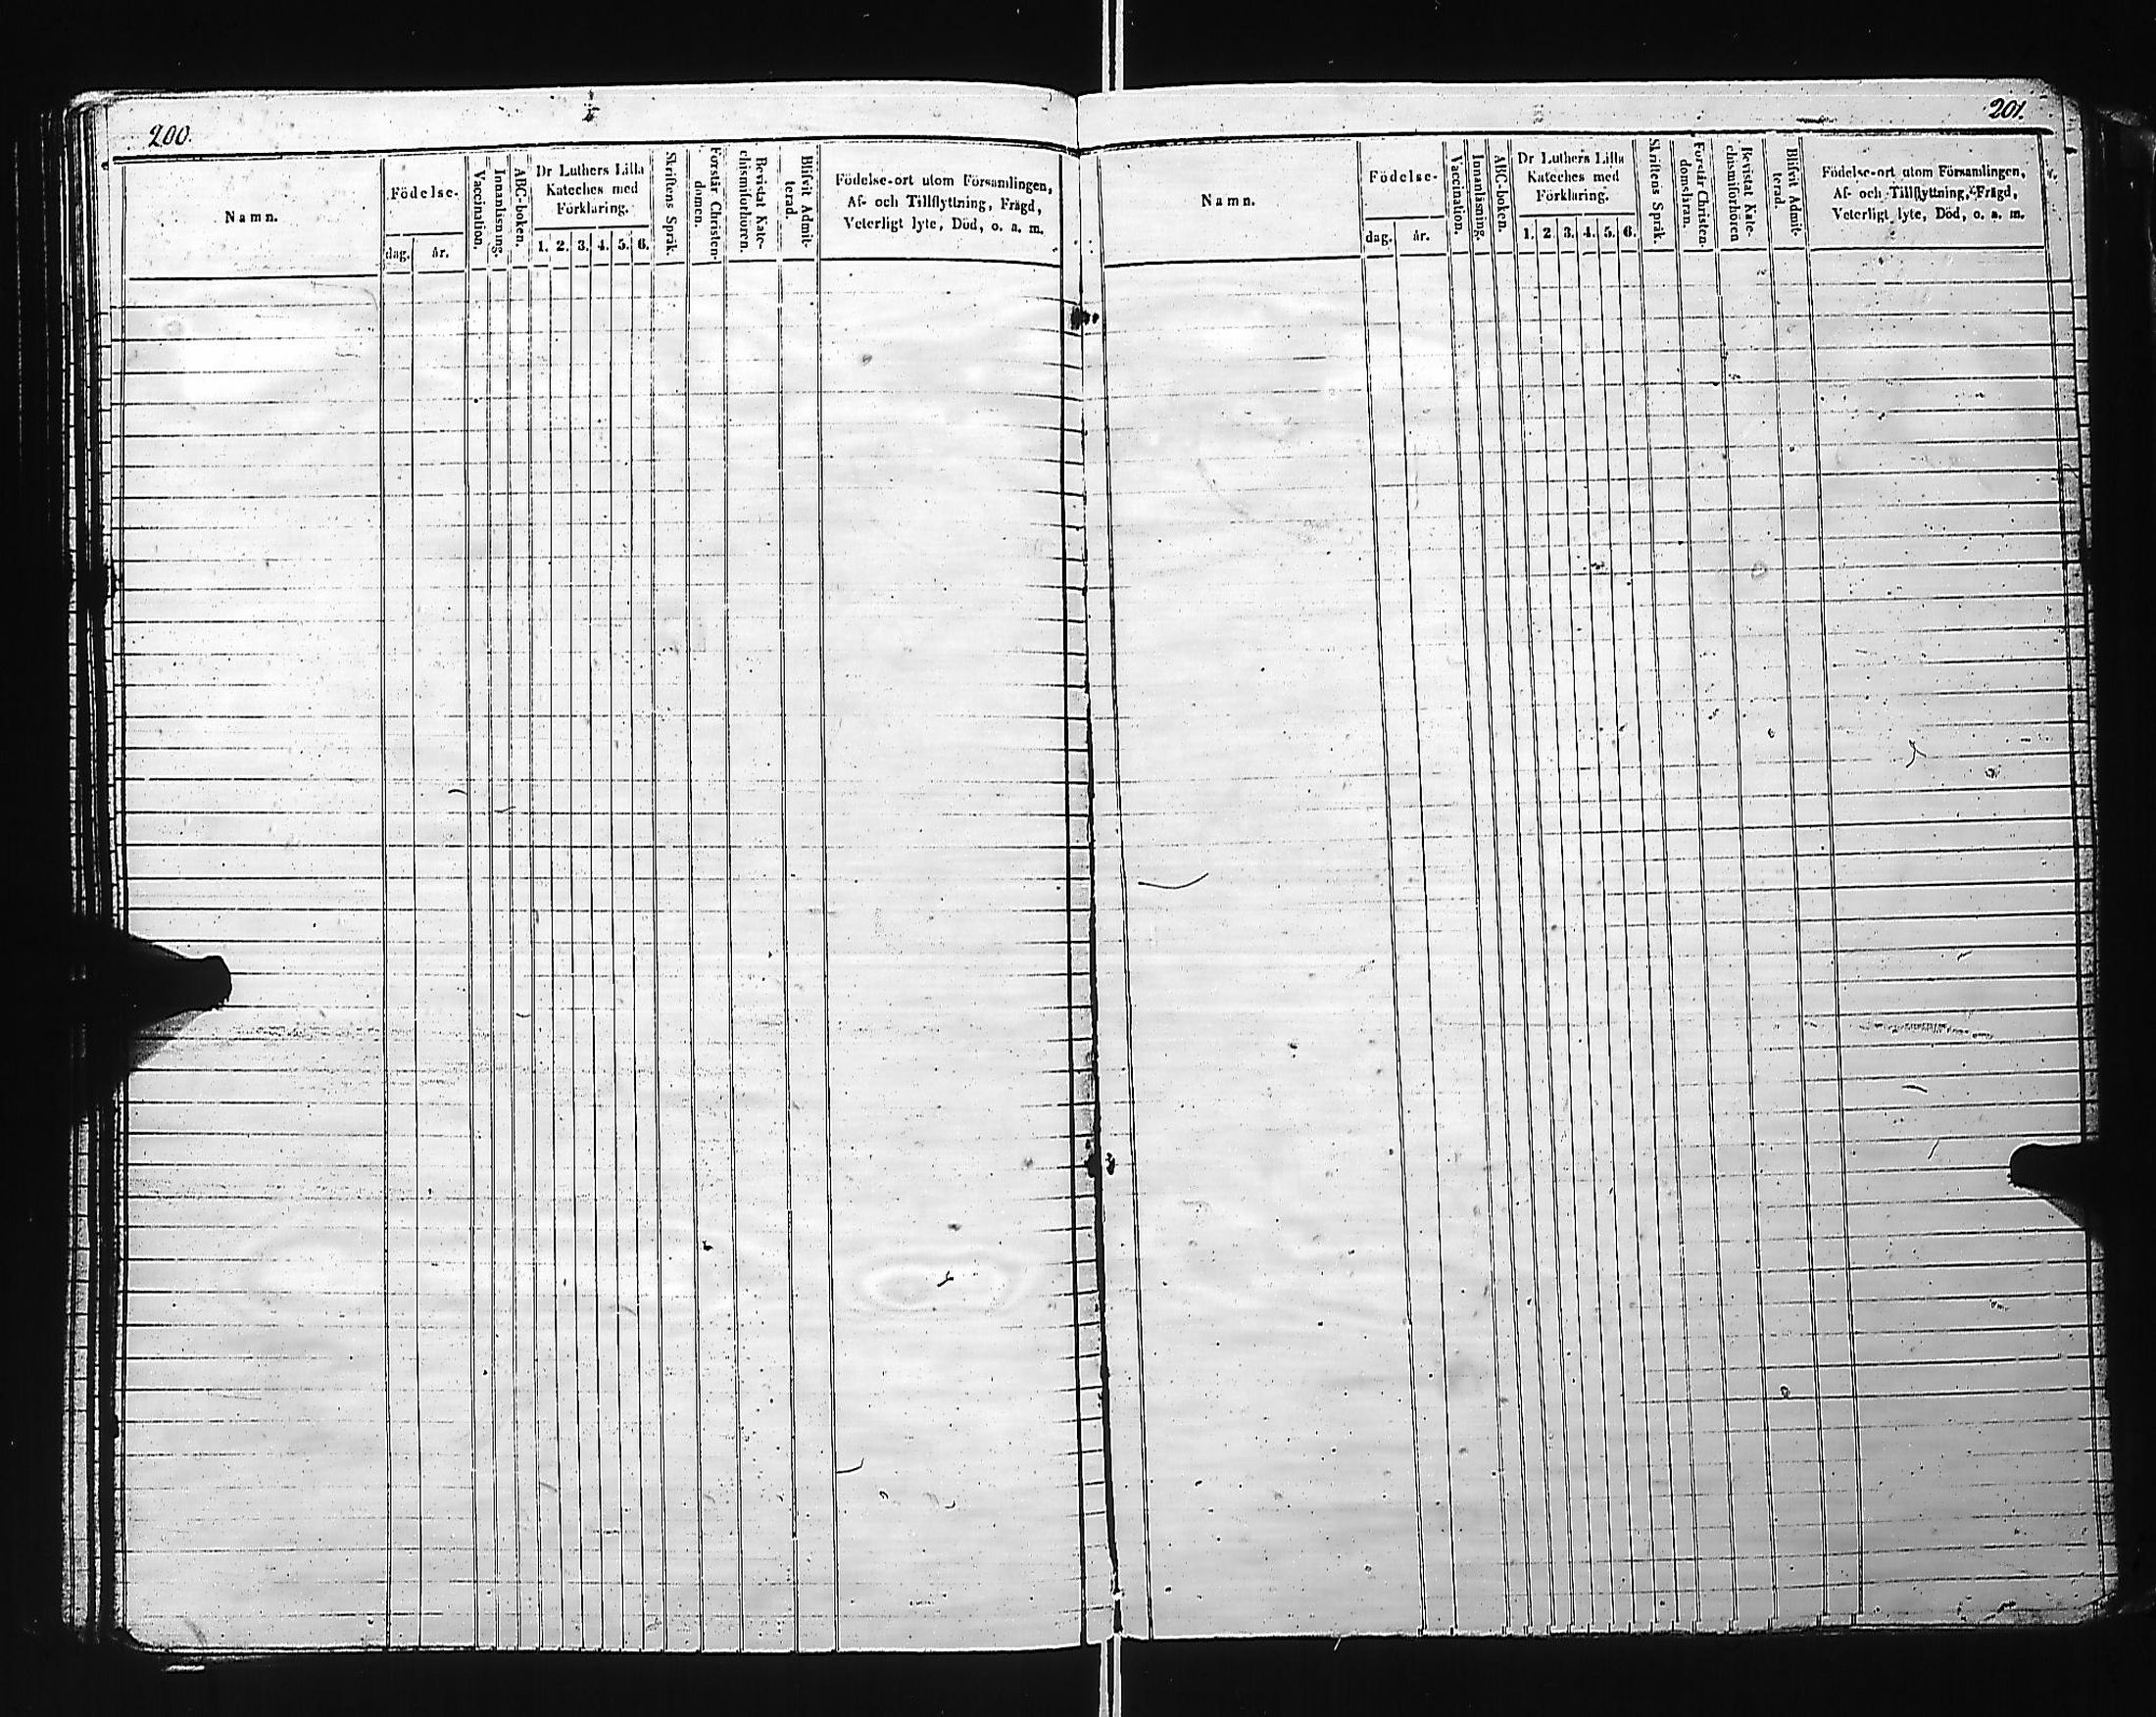 200.
Namn.
Födelse-
dag.
år.
Vaccination.
Innanläsning.
ABC-boken.
Dr Luthers Lilla
Kateches med
Förklaring.
1. 2. 3. 4. 5. 6.
Skriftens Språk.
Förstår Christen-
domen.
Bevistat Kate-
chismiförhören.
Blifvit Admit-
terad.
Födelse-ort utom Församlingen,
Af- och Tillflyttning, Frägd,
Veterligt lyte, Död, o. a. m.
201.
Namn.
Födelse-
dag.
år.
Vaccination.
Innanläsning.
ABC-boken.
Dr Luthers Lilla
Kateches med
Förklaring.
1. 2. 3. 4. 5. 6.
Skriftens Språk.
Förstår Christen-
domsläran.
Bevistat Kate-
chismiförhören
Blifvit Admit-
terad.
Födelse-ort utom Församlingen,
Af- och Tillflyttning, Frägd,
Veterligt lyte, Död, o. a. m.